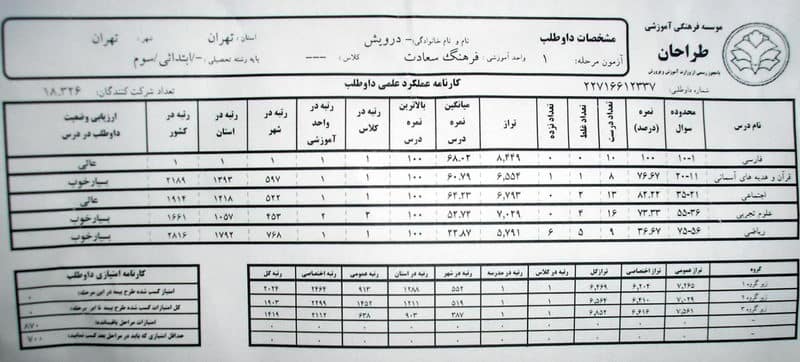 موسسه فرهنگی آموزشی
طراحان
شماره داوطلبی: ۲۲۷۱۶۶۱۲۳۳۷
مشخصات داوطلب
نام و نام خانوادگی: - درویش
استان: تهران
شهر: تهران
آزمون مرحله: ۱
واحد آموزشی: فرهنگ سعادت
کلاس: ---
پایه رشته تحصیلی: -/ابتدائی/سوم
کارنامه عملکرد علمی داوطلب
تعداد شرکت کنندگان: ۱۸,۳۲۶
نام درس محدوده سوال نمره (درصد) تعداد درست تعداد غلط تعداد نزده تراز میانگین نمره درس بالاترین نمره درس رتبه در کلاس رتبه در واحد آموزشی رتبه در شهر رتبه در استان رتبه در کشور ارزیابی وضعیت داوطلب در درس
فارسی ۱-۱۰ ۱۰۰ ۱۰ ۰ ۰ ۸,۴۴۹ ۶۸.۰۲ ۱۰۰ ۱ ۱ ۱ ۱ ۱ عالی
قرآن و هدیه های آسمانی ۱۱-۲۰ ۷۶.۶۷ ۸ ۱ ۱ ۶,۵۵۴ ۶۰.۷۹ ۱۰۰ ۱ ۱ ۵۹۷ ۱۳۹۳ ۲۱۸۹ بسیارخوب
اجتماعی ۲۱-۳۵ ۸۲.۲۲ ۱۳ ۲ ۰ ۶,۷۹۳ ۶۲.۲۳ ۱۰۰ ۱ ۱ ۵۲۲ ۱۲۱۸ ۱۹۱۴ عالی
علوم تجربی ۳۶-۵۵ ۷۳.۳۳ ۱۶ ۴ ۰ ۷,۰۲۹ ۵۲.۷۲ ۱۰۰ ۲ ۲ ۴۵۳ ۱۰۵۷ ۱۶۶۱ بسیارخوب
ریاضی ۵۶-۷۵ ۳۶.۶۷ ۹ ۵ ۶ ۵,۷۹۱ ۲۲.۸۷ ۱۰۰ ۱ ۱ ۷۶۸ ۱۷۹۲ ۲۸۱۶ بسیارخوب
گروه تراز عمومی تراز اختصاصی تراز کل رتبه در کلاس رتبه در مدرسه رتبه در شهر رتبه در استان رتبه عمومی رتبه اختصاصی رتبه کل
زیر گروه ۱ ۷,۲۶۵ ۶,۲۰۲ ۶,۴۶۹ ۱ ۱ ۵۵۲ ۱۲۸۸ ۹۱۳ ۲۴۶۴ ۲۰۲۴
زیر گروه ۲ ۷,۰۲۹ ۶,۴۱۰ ۶,۵۶۴ ۱ ۱ ۵۱۹ ۱۲۱۱ ۱۴۵۲ ۲۴۹۹ ۱۹۰۳
زیر گروه ۳ ۷,۵۶۱ ۶,۶۱۶ ۶,۸۵۲ ۱ ۱ ۳۸۷ ۹۰۳ ۶۳۸ ۲۱۱۲ ۱۴۱۹
کارنامه امتیازی داوطلب
امتیاز کسب شده طرح بیمه در این مرحله: ۰
کل امتیازات کسب شده طرح بیمه تا این مرحله: ۰
امتیازات مراحل باقیمانده:
حداقل امتیازی که باید در مراحل بعد کسب نمائید: ۷۰۰